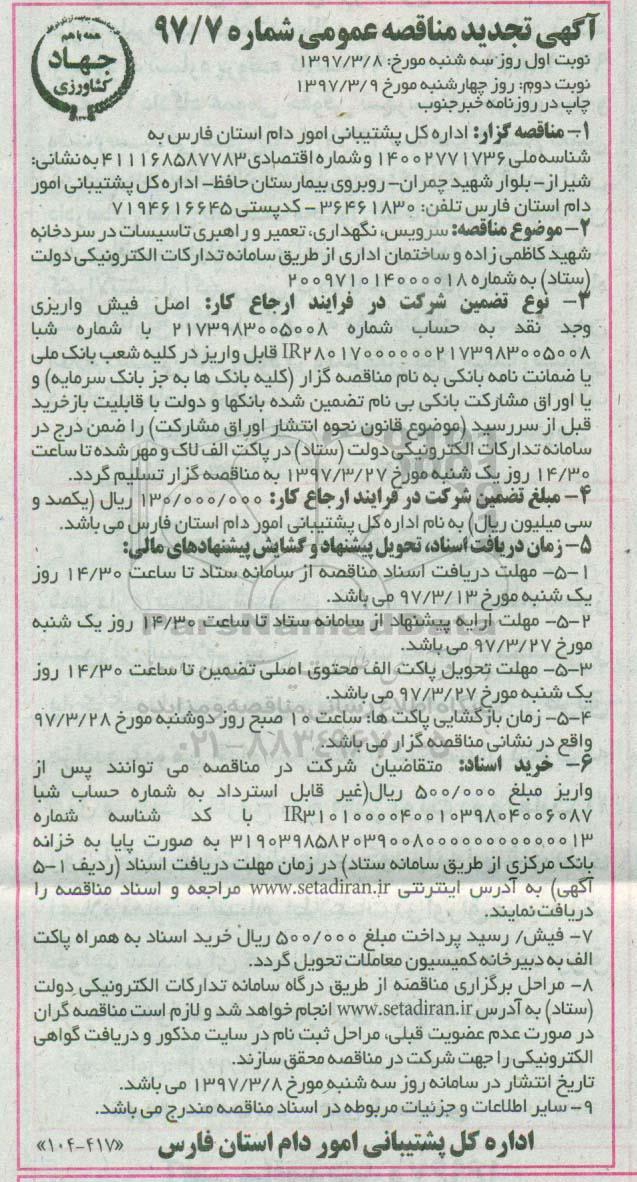 آگهی تجدید مناقصه عمومی شماره ۹۷/۷
همه با هم
جهاد
کشاورزی
نوبت اول روز سه شنبه مورخ: ۱۳۹۷/۳/۸
نوبت دوم: روز چهارشنبه مورخ ۱۳۹۷/۳/۹
چاپ در روزنامه خبرجنوب
۱- مناقصه گزار: اداره کل پشتیبانی امور دام استان فارس به
شناسه ملی ۱۴۰۰۲۷۷۱۷۳۶ و شماره اقتصادی ۴۱۱۱۶۸۵۸۷۷۸۳ به نشانی:
شیراز- بلوار شهید چمران- روبروی بیمارستان حافظ- اداره کل پشتیبانی امور
دام استان فارس تلفن: ۳۶۴۶۱۸۳۰ - کدپستی ۷۱۹۴۶۱۶۶۴۵
۲- موضوع مناقصه: سرویس، نگهداری، تعمیر و راهبری تاسیسات در سردخانه
شهید کاظمی زاده و ساختمان اداری از طریق سامانه تدارکات الکترونیکی دولت
(ستاد) به شماره ۲۰۰۹۷۱۰۱۴۰۰۰۰۱۸
۳- نوع تضمین شرکت در فرایند ارجاع کار: اصل فیش واریزی
وجد نقد به حساب شماره ۲۱۷۳۹۸۳۰۰۵۰۰۸ با شماره شبا
IR۲۸۰۱۷۰۰۰۰۰۰۰۲۱۷۳۹۸۳۰۰۵۰۰۸ قابل واریز در کلیه شعب بانک ملی
یا ضمانت نامه بانکی به نام مناقصه گزار (کلیه بانک ها به جز بانک سرمایه) و
یا اوراق مشارکت بانکی بی نام تضمین شده بانکها و دولت با قابلیت بازخرید
قبل از سررسید (موضوع قانون نحوه انتشار اوراق مشارکت) را ضمن درج در
سامانه تدارکات الکترونیکی دولت (ستاد) در پاکت الف لاک و مهر شده تا ساعت
۱۴/۳۰ روز یک شنبه مورخ ۱۳۹۷/۳/۲۷ به مناقصه گزار تسلیم گردد.
۴- مبلغ تضمین شرکت در فرایند ارجاع کار: ۱۳۰/۰۰۰/۰۰۰ ریال (یکصد و
سی میلیون ریال) به نام اداره کل پشتیبانی امور دام استان فارس می باشد.
۵- زمان دریافت اسناد، تحویل پیشنهاد و گشایش پیشنهادهای مالی:
۵-۱- مهلت دریافت اسناد مناقصه از سامانه ستاد تا ساعت ۱۴/۳۰ روز
یک شنبه مورخ ۹۷/۳/۱۳ می باشد.
۵-۲- مهلت ارایه پیشنهاد از سامانه ستاد تا ساعت ۱۴/۳۰ روز یک شنبه
مورخ ۹۷/۳/۲۷ می باشد.
۵-۳- مهلت تحویل پاکت الف محتوی اصلی تضمین تا ساعت ۱۴/۳۰ روز
یک شنبه مورخ ۹۷/۳/۲۷ می باشد.
۵-۴- زمان بازگشایی پاکت ها: ساعت ۱۰ صبح روز دوشنبه مورخ ۹۷/۳/۲۸
واقع در نشانی مناقصه گزار می باشد.
۶- خرید اسناد: متقاضیان شرکت در مناقصه می توانند پس از
واریز مبلغ ۵۰۰/۰۰۰ ریال(غیر قابل استرداد به شماره حساب شبا
IR۳۱۰۱۰۰۰۰۴۰۰۱۰۳۹۸۰۴۰۰۶۰۸۷ با کد شناسه شماره
۳۱۹۰۳۹۸۵۸۲۰۳۹۰۰۸۰۰۰۰۰۰۰۰۰۰۰۰۱۳ به صورت پایا به خزانه
بانک مرکزی از طریق سامانه ستاد) در زمان مهلت دریافت اسناد (ردیف ۱-۵
آگهی) به آدرس اینترنتی www.setadiran.ir مراجعه و اسناد مناقصه را
دریافت نمایند.
۷- فیش/ رسید پرداخت مبلغ ۵۰۰/۰۰۰ ریال خرید اسناد به همراه پاکت
الف به دبیرخانه کمیسیون معاملات تحویل گردد.
۸- مراحل برگزاری مناقصه از طریق درگاه سامانه تدارکات الکترونیکی دولت
(ستاد) به آدرس www.setadiran.ir انجام خواهد شد و لازم است مناقصه گران
در صورت عدم عضویت قبلی، مراحل ثبت نام در سایت مذکور و دریافت گواهی
الکترونیکی را جهت شرکت در مناقصه محقق سازند.
تاریخ انتشار در سامانه روز سه شنبه مورخ ۱۳۹۷/۳/۸ می باشد.
۹- سایر اطلاعات و جزئیات مربوطه در اسناد مناقصه مندرج می باشد.
اداره کل پشتیبانی امور دام استان فارس
«۱۰۴-۴۱۷»